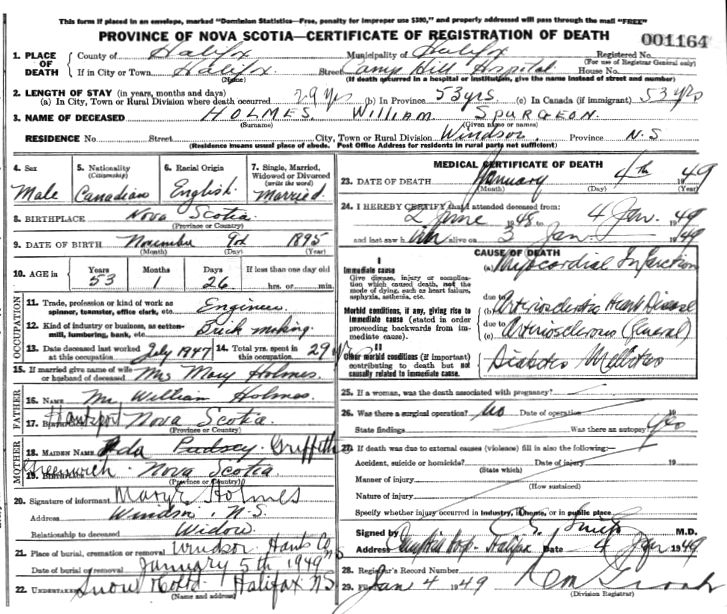 This form if placed in an envelope, marked "Dominion Statistics—Free, penalty for improper use $300," and properly addressed will pass through the mail "FREE"
PROVINCE OF NOVA SCOTIA—CERTIFICATE OF REGISTRATION OF DEATH
001164
1. PLACE OF DEATH County of Halifax Municipality of Halifax Registered No.
(For use of Registrar General only)
If in City or Town Halifax Street Camp Hill Hospital House No.
(Name) (If death occurred in a hospital or institution, give the name instead of street and number)
2. LENGTH OF STAY (in years, months and days)
(a) In City, Town or Rural Division where death occurred 29 yrs (b) In Province 53 yrs (c) In Canada (if immigrant) 53 yrs
3. NAME OF DECEASED HOLMES WILLIAM SPURGEON
(Surname) (Given name or names)
RESIDENCE No. Street City, Town or Rural Division Windsor Province N.S
(Residence means usual place of abode. Post Office Address for residents in rural parts not sufficient)
4. Sex Male
5. Nationality (Citizenship) Canadian
6. Racial Origin English
7. Single, Married, Widowed or Divorced (write the word) Married
8. BIRTHPLACE Nova Scotia
(Province or Country)
9. DATE OF BIRTH November 1895
(Month) (Day) (Year)
10. AGE in Years 53 Months 1 Days 26 If less than one day old hrs. or min.
OCCUPATION
11. Trade, profession or kind of work as spinner, teamster, office clerk, etc. Engineer
12. Kind of industry or business, as cotton-mill, lumbering, bank, etc. Brick making.
13. Date deceased last worked at this occupation July 1947 14. Total yrs. spent in this occupation 29 yrs
15. If married give name of wife or husband of deceased Mrs Mary Holmes.
FATHER
16. Name Mr. William Holmes.
17. Birthplace Hantsport Nova Scotia.
(Province or Country)
MOTHER
18. MAIDEN NAME Ada Griffith
19. Birthplace Greenwich - Nova Scotia
(Province or Country)
20. Signature of informant Mary Holmes
Address Windsor, N.S.
Relationship to deceased Widow.
21. Place of burial, cremation or removal Windsor Hants Co NS
Date of burial or removal January 5th 1949
22. UNDERTAKER Snow Halifax NS
(Name and address)
MEDICAL CERTIFICATE OF DEATH
23. DATE OF DEATH January 4th 1949
(Month) (Day) (Year)
24. I HEREBY CERTIFY that I attended deceased from:
2 June 1948 to 4 Jan. 1949
and last saw him alive on 3 Jan. 1949
CAUSE OF DEATH
I
Immediate cause
Give disease, injury or complication which caused death, not the mode of dying, such as heart failure, asphyxia, asthenia, etc.
(a) Myocardial Infarction
due to
Morbid conditions, if any, giving rise to immediate cause (stated in order proceeding backwards from immediate cause)
Arteriosclerotic Heart Disease
due to
(c) Arteriosclerosis (General)
II
Other morbid conditions (if important) contributing to death but not causally related to immediate cause.
Diabetes Mellitus
25. If a woman, was the death associated with pregnancy?
26. Was there a surgical operation? No Date of operation 19
State findings Was there an autopsy? Yes
27. If death was due to external causes (violence) fill in also the following:—
Accident, suicide or homicide? Date of injury 19
(State which)
Manner of injury
(How sustained)
Nature of injury
Specify whether injury occurred in industry, in home, or in public place.
Signed by Smith M.D.
Address Camp Hill Hosp. Halifax Date 4 Jan 1949
28. Registrar's Record Number
29. Filed Jan 4 1949
(Division Registrar)